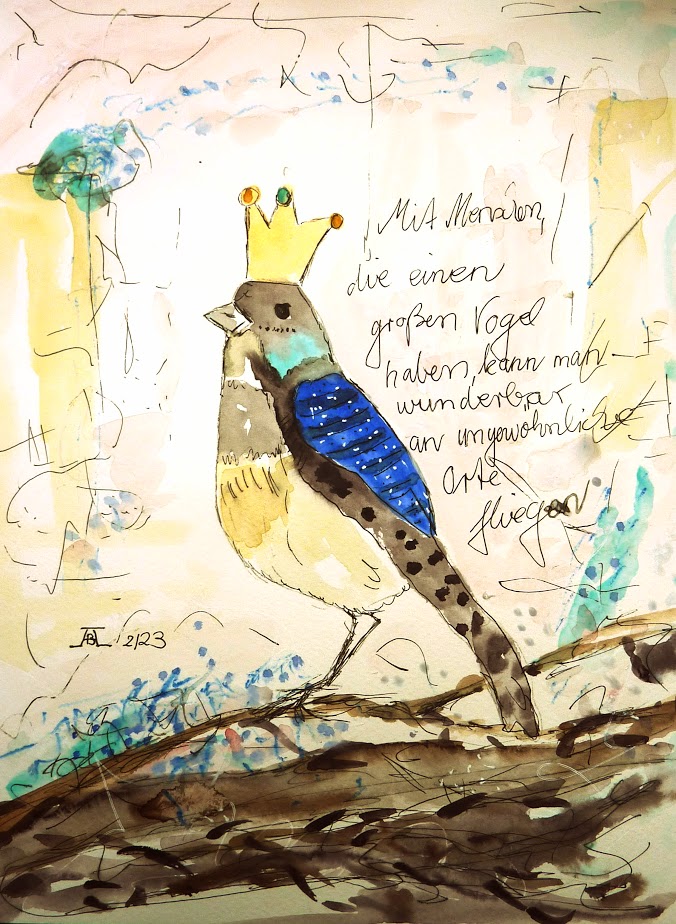 Mit Menschen,
die einen
großen Vogel
haben, kann man
wunderbar
an ungewöhnliche
Orte
fliegen
ABL 2/23